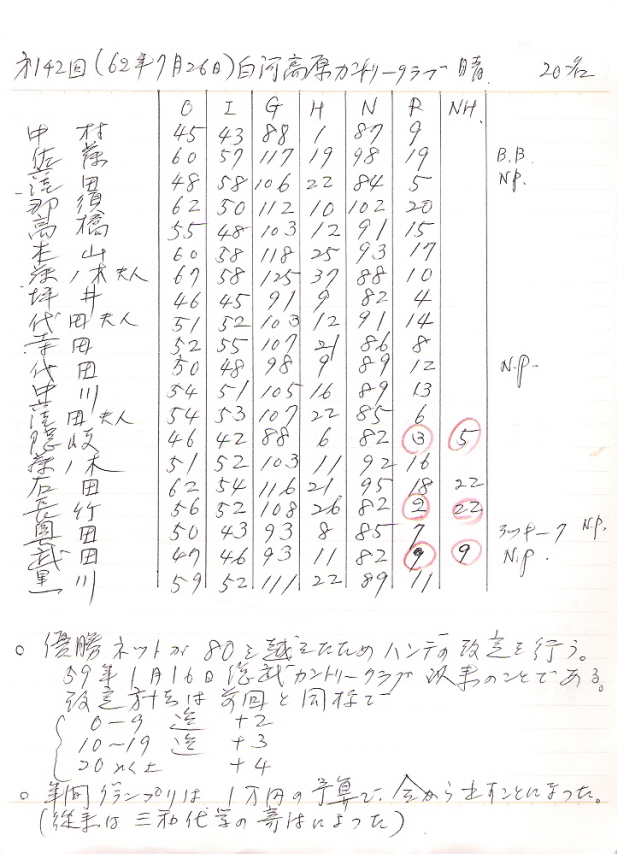 第142回(62年7月26日)白河高原カントリークラブ 晴 20名
O I G H N R NH.
中村 45 43 88 1 87 9
佐藤 60 57 117 19 98 19 B.B.
田 48 58 106 22 84 5 N.P.
那須 62 50 112 10 102 20
高橋 55 48 103 12 91 15
山 60 58 118 25 93 17
藤ノ木夫人 67 58 125 37 88 10
坪井 46 45 91 9 82 4
代田夫人 51 52 103 12 91 14
寺田 52 55 107 21 86 8
代田 50 48 98 9 89 12 N.P.
川 54 51 105 16 89 13
田夫人 54 53 107 22 85 6
隠岐 46 42 88 6 82 3 5
藤ノ木 51 52 103 11 92 16
石田 62 54 116 21 95 18 22
長竹 56 52 108 26 82 2 22
奥田 50 43 93 8 85 7 ラッキー7 N.P.
武田 47 46 93 11 82 9 N.P.
川 59 52 111 22 89 11
○ 優勝ネットが80を越えたためハンデの改定を行う。
59年1月16日総武カントリークラブ以来のことである。
改定方法は前回と同様で
0-9迄 +2
10~19迄 +3
20以上 +4
○ 年間グランプリは1万円の予算で、会から出すことになった。
(従来は三和化学の寄付によった)